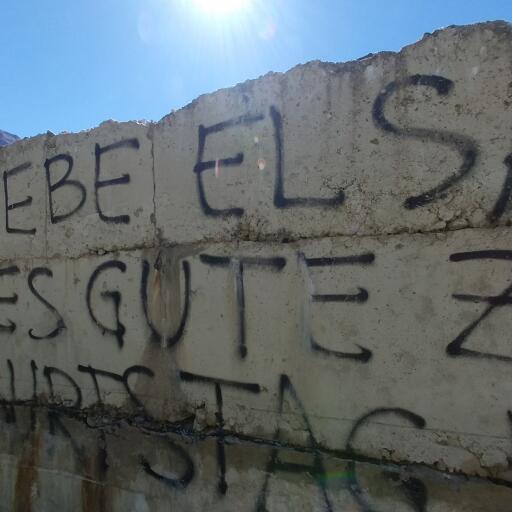 EBE ELSA
ES GUTE Z
URTSTAG